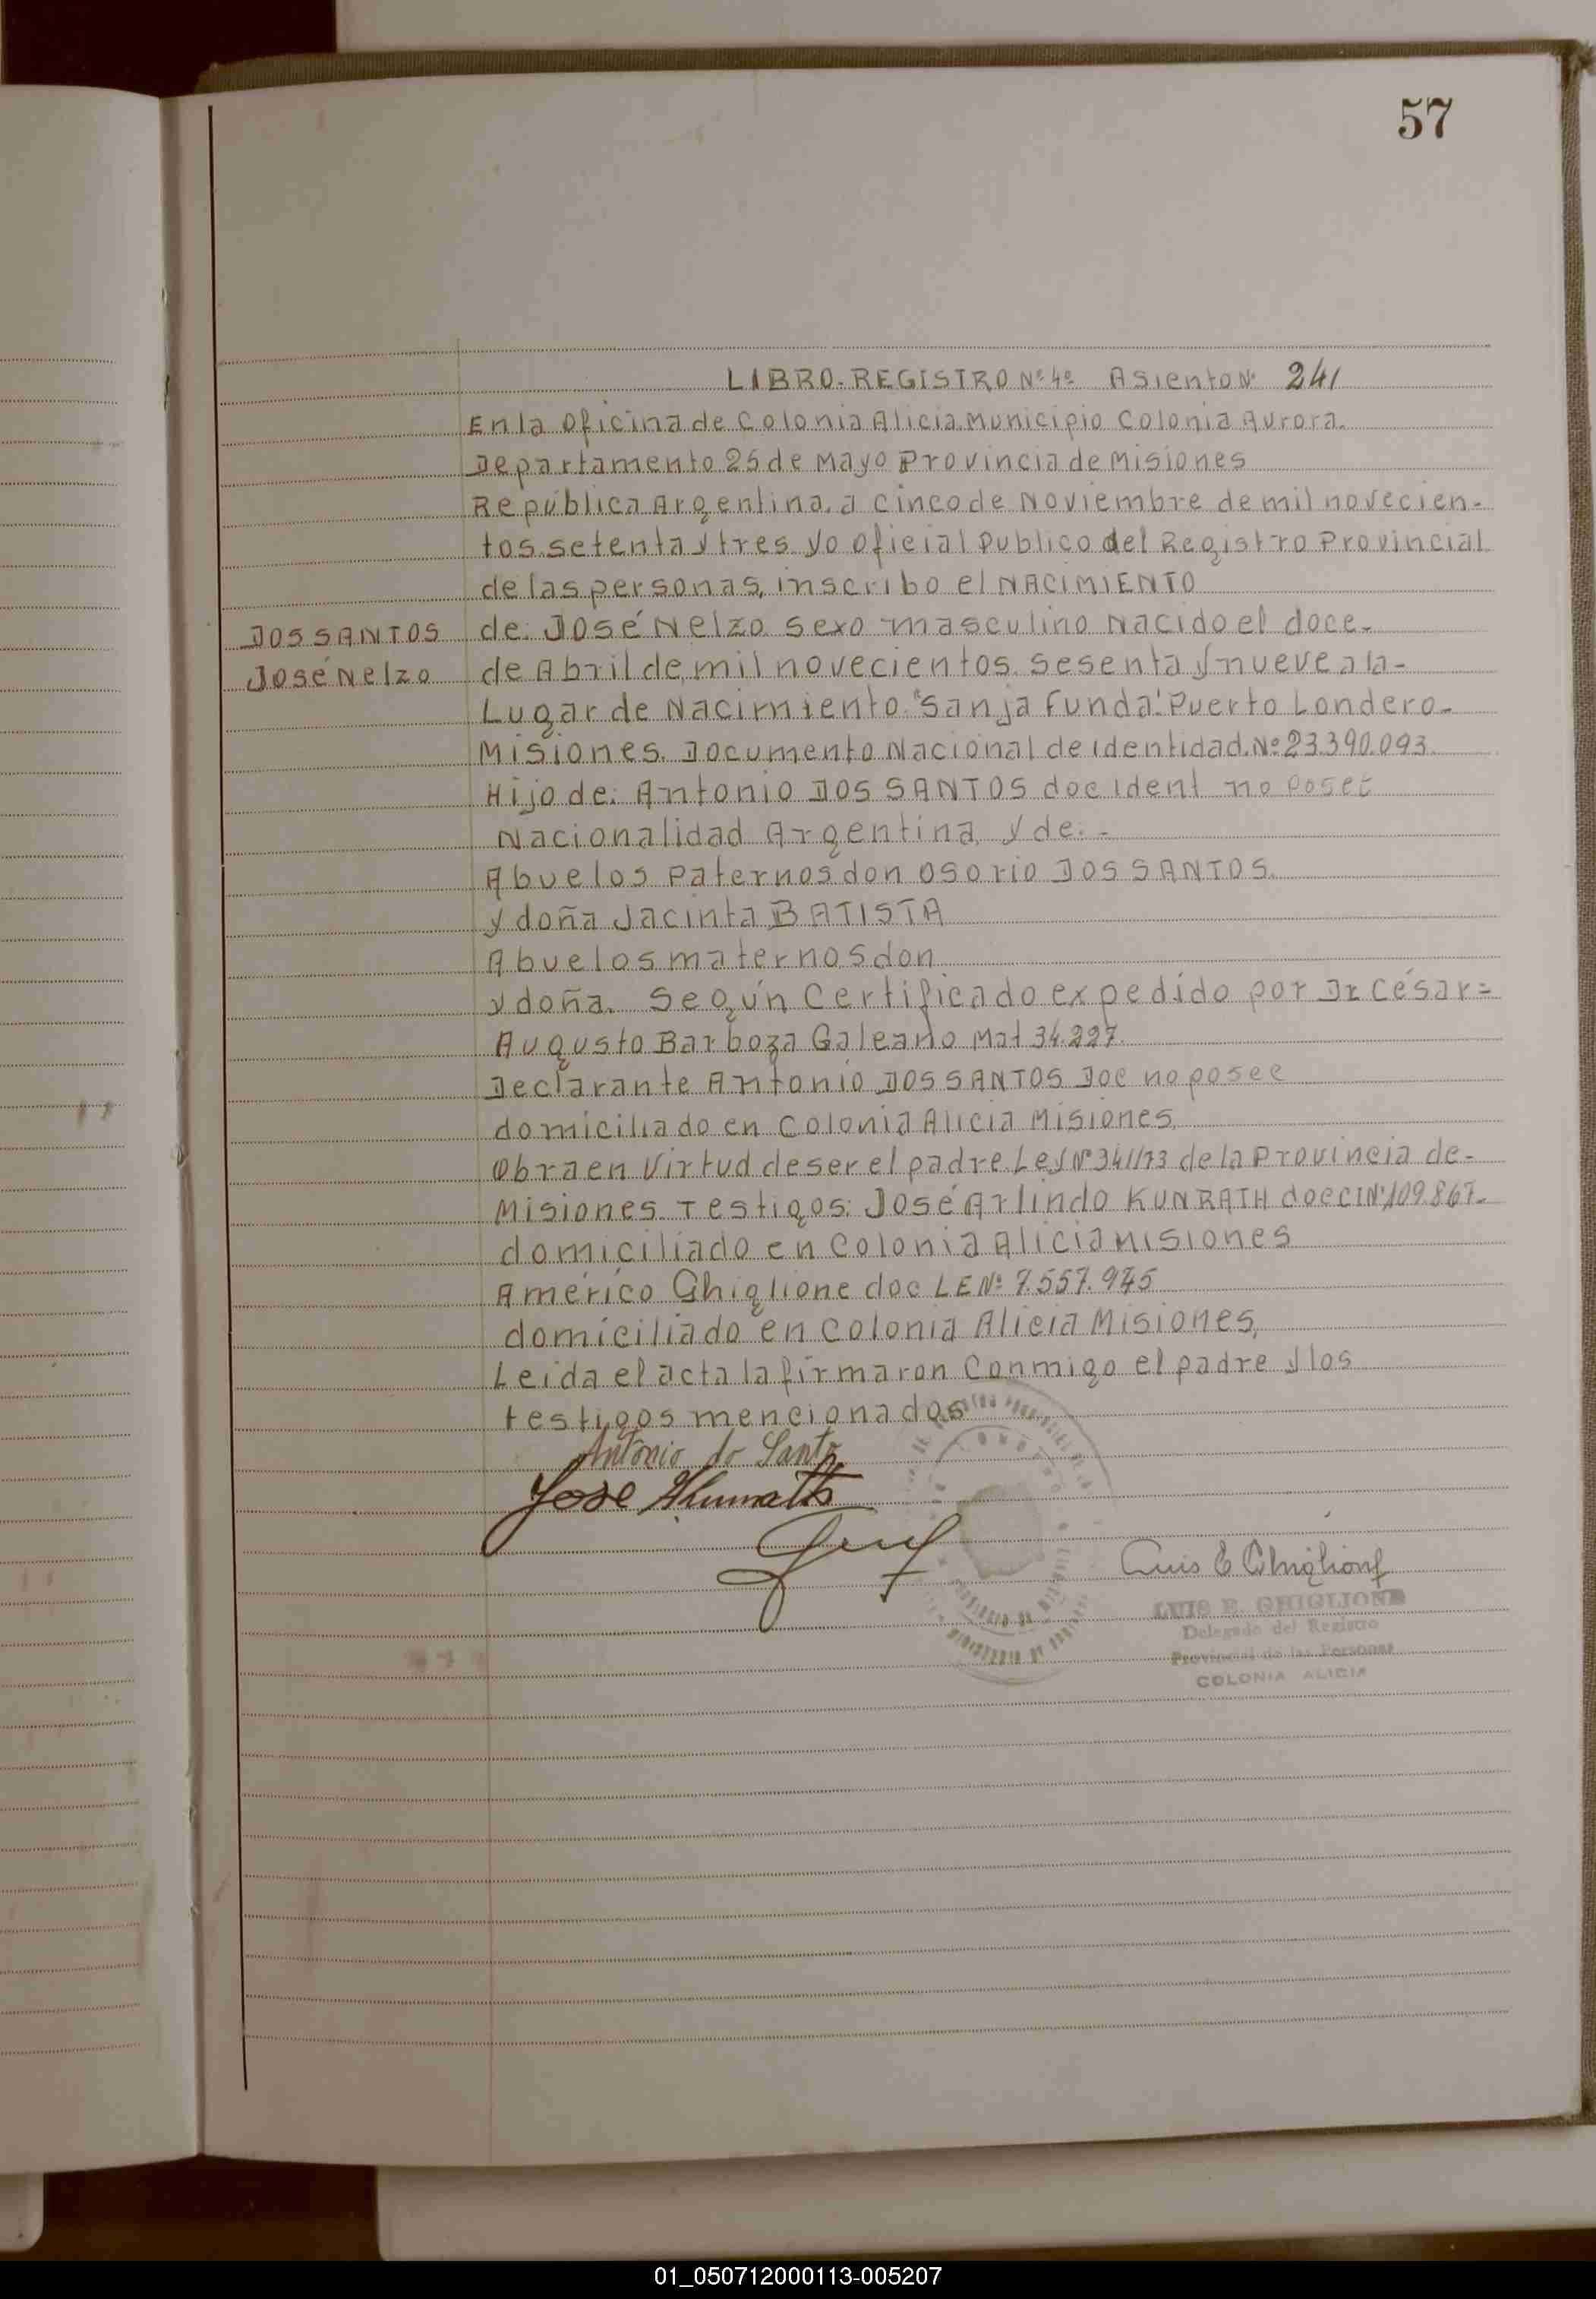 57
LIBRO-REGISTRO Nº 4º Asiento Nº 241
En la Oficina de Colonia Alicia Municipio Colonia Aurora.
Departamento 25 de Mayo Provincia de Misiones
República Argentina, a cinco de Noviembre de mil novecien-
tos setenta y tres yo Oficial Publico del Registro Provincial
de las personas, inscribo el NACIMIENTO
DOS SANTOS de: José Nelzo sexo masculino Nacido el doce-
José Nelzo de Abril de mil novecientos sesenta y nueve a la-
Lugar de Nacimiento "Sanja Funda" Puerto Londero-
Misiones. Documento Nacional de identidad. Nº 23.390.093
Hijo de: Antonio DOS SANTOS doc ident no posee
Nacionalidad Argentina y de: -
Abuelos Paternos don Osorio DOS SANTOS.
y doña Jacinta BATISTA
Abuelos maternos don
y doña. Según Certificado expedido por Dr César=
Augusto Barboza Galeano Mat 34.227.
Declarante Antonio DOS SANTOS Doc no posee
domiciliado en Colonia Alicia Misiones.
Obra en Virtud de ser el padre Ley Nº 341/73 de la Provincia de-
Misiones Testigos: José Arlindo KUNRATH doc CI Nº 109.867-
domiciliado en Colonia Alicia Misiones
Américo Ghiglione doc LE Nº 7.557.975
domiciliado en Colonia Alicia Misiones,
Leida el acta la firmaron Conmigo el padre y los
testigos mencionados
Antonio do Santo
Jose
Luis E Ghiglione
LUIS E. GHIGLIONE
Delegado del Registro
Provincial de las Personas
COLONIA ALICIA
01_050712000113-005207